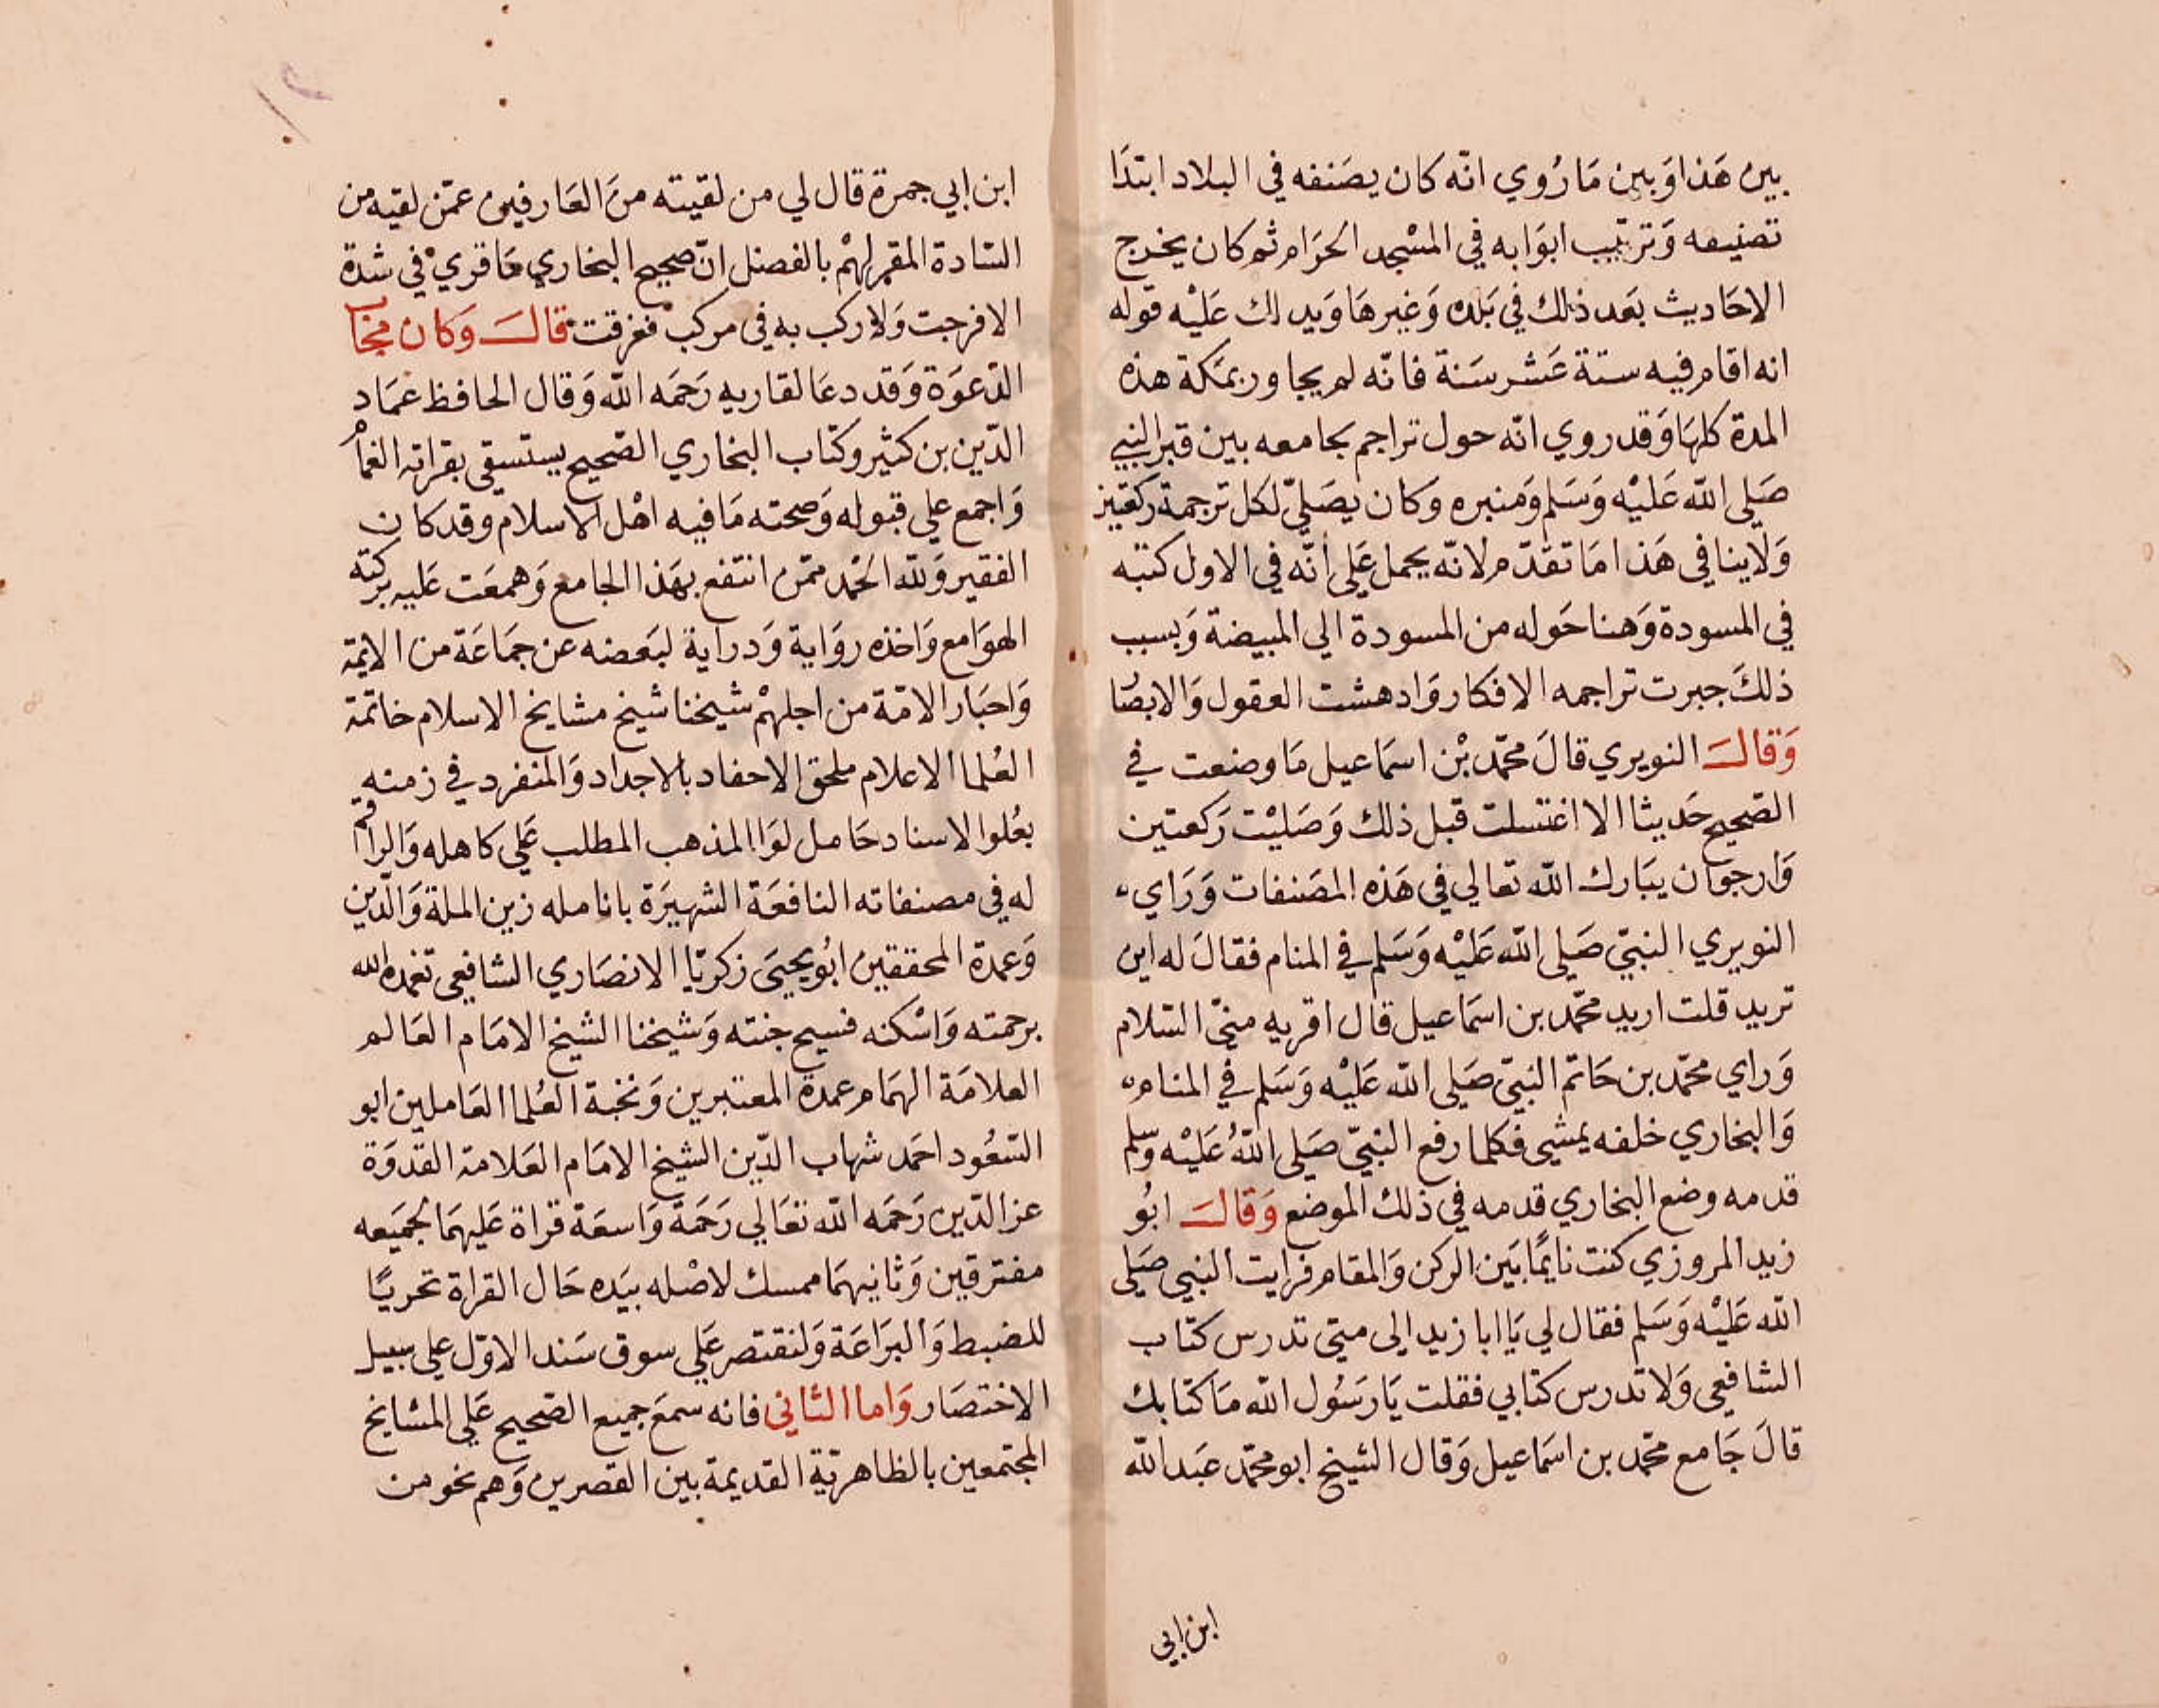 بين هَذا وَبين مَا رُوي انّه كان يصَنفه في البلاد ابتدَا
تصنيفه وَترتيب ابوَابه في المسْجد الحرَام ثم كان يخرج
الاحَاديث بعَد ذلك في بَلده وَغيرهَا وَيدلك عَليْه قوله
انه اقام فيه ستة عَشر سَنة فانّه لم يجاور بمَكة هذه
المدة كلهَا وَقد روي انّه حول تراجم بجامعه بين قبر النبي
صَلى الله عَليْه وَسَلم وَمنبره وكان يصَليّ لكل ترجمة ركعتين
وَلاينافي هَذا مَا تقدّم لانّه يحمل عَلي أنّه في الاول كتبه
في المسودة وَهنا حَوله من المسودة الي المبيضة وَبسبب
ذلكَ جبرت تراجمه الافكار وَادهشت العقول وَالابصَا
وَقالَ النويري قالَ محمّد بْن اسمَاعيل مَا وضعت في
الصّحيح حَديثا الا اغتسلت قبل ذلك وَصَليْت رَكعتين
وَارجوا ن يبَارك الله تعالي في هَذه المصَنفات وَرَاي
النويري النبيّ صَلى الله عَليْه وَسَلم في المنام فقالَ له اين
تريد قلت اريد محمّد بن اسمَاعيل قال اقريه منيّ السّلام
وَراي محمّد بن حَاتم النبيّ صَلى الله عَليْه وَسَلم في المنام
وَالبخاري خلفه يمشي فكلما رفع النبيّ صَلى اللهُ عَليْه وسلم
قدمه وضع البخاري قدمه في ذلك الموضع وَقالَ ابُو
زيد المروزي كنت نايمًا بَين الركن وَالمقام فرايت النبي صَلى
الله عَليْه وَسَلم فقال لي يَا ابا زيد الى متي تدرس كتاب
الشافعي وَلا تدرس كتابي فقلت يَا رَسُول الله مَا كتابك
قالَ جَامع محمّد بن اسمَاعيل وَقال الشيخ ابو محمّد عَبد الله
ابن ابي
ابن ابي جمرة قال لي من لقيته منَ العَارفين عمّن لقيه من
السَادة المقر لهمْ بالفضل انّ صحيح البخاري مَا قري في شدة
الا فرجت وَلا ركب به في مركب فغرقت قالَ وَكان مجَا
الدّعوَة وَقد دعَا لقاريه رَحمَه الله وَقال الحافظ عمَاد
الدّين بن كثير وكتاب البخاري الصّحيح يستسقي بقراته الغمَا
وَاجمع علي قبوله وَصحته مَا فيه اهْل الاسلام وقد كان
الفقير وَلله الحَمد ممّن انتفع بهَذا الجامع وَهمعَت عَليه بركته
الهوَامع وَاخذه روَاية وَدراية لبَعضه عن جمَاعَة من الايمّة
وَاحبَار الامّة من اجلهمْ شيخنا شيخ مشايخ الاسلام خاتمة
العُلما الاعلام ملحق الاحفاد بالاجداد وَالمنفرد في زمنه
بعُلوا لاسناد حَامل لوَا المذهب المطلب عَلي كاهله وَالراقم
له في مصنفاته النافعَة الشهيرَة بانامله زين الملة وَالدّين
وَعمدة المحققين ابُو يحيَى زكريّا الانصَاري الشافعي تغمده الله
برحمته وَاسْكنه فسيح جنته وَشيخنا الشيخ الامَام العَالم
العلامَة الهمَام عمدة المعتبرين وَنخبة العُلما العَاملين ابو
السّعُود احَمد شهاب الدّين الشيخ الامَام العَلامة القدوَة
عز الدّين رَحمَه الله تعَالي رَحمَة وَاسعَة قراة عَليهمَا لجمَيعه
مفترقين وَثانيهمَا ممسك لاصْله بيَده حَال القراة تحريًا
للضبط وَالبرَاعَة وَلنقتصر عَلي سوق سَند الاوّل علي سبيل
الاختصَار وَاما الثاني فانه سمعَ جميع الصّحيح عَلي المشايخ
المجتمعين بالظاهريّة القديمة بين القصرين وَهم نحو من